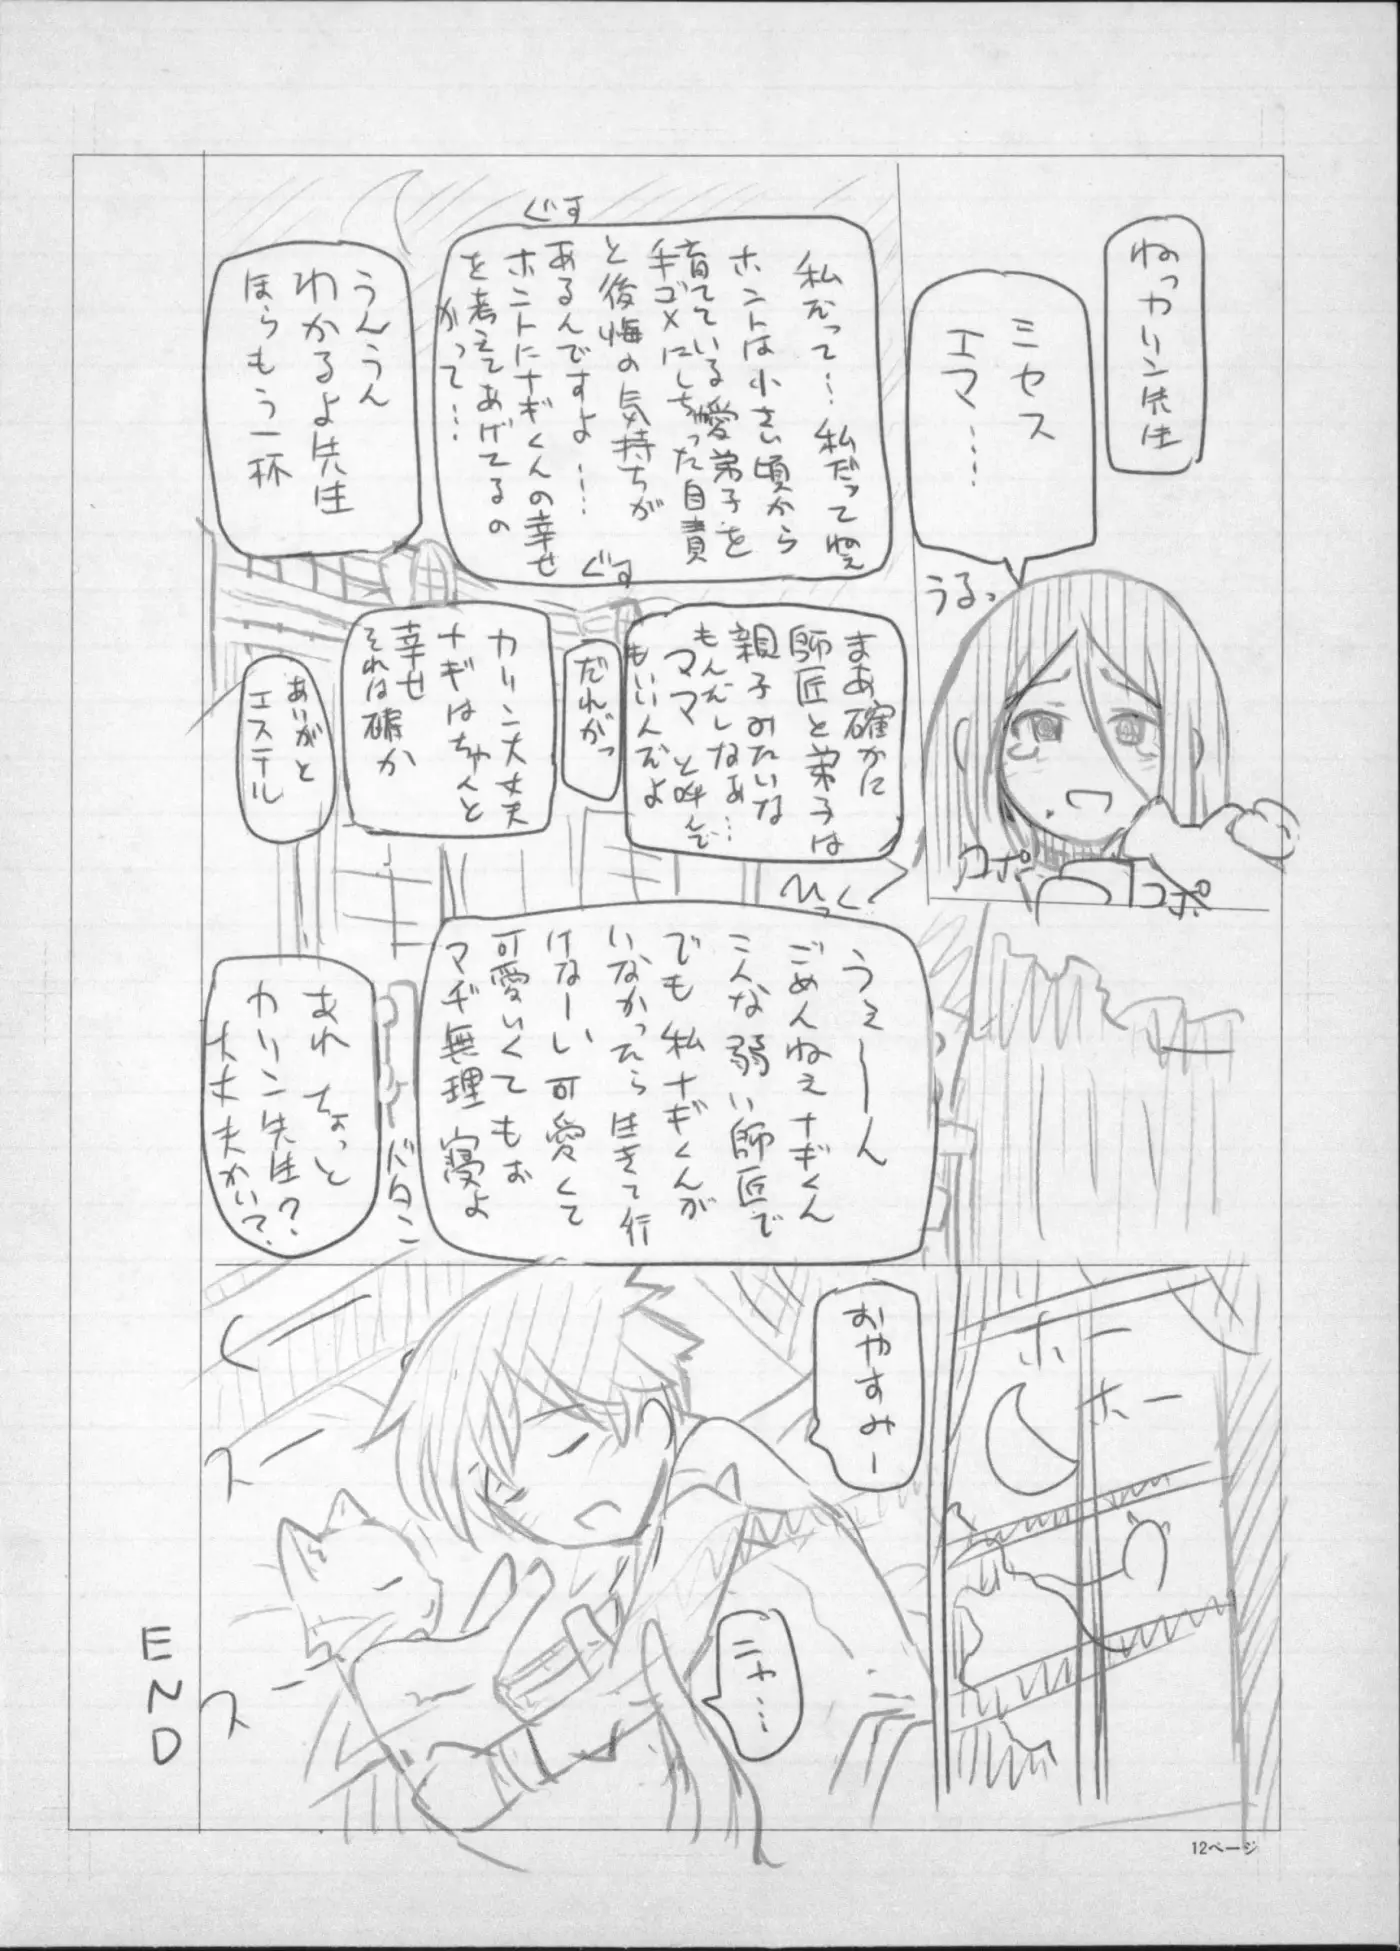 ねっカリン先生
ミセス
エマ……
うるっ
コポ
コポ
ぐす
私だって…私だってねぇ
ホントは小さい頃から
育てている愛弟子を
手ゴメにしちゃった自責
と後悔の気持ちが
あるんですよ……
ホントにナギくんの幸せ
を考えてあげてるの
かって…
ぐす
うんうん
わかるよ先生
ほらもう一杯
まあ確かに
師匠と弟子は
親子みたいな
もんだしなぁ…
ママと呼んで
もいいんだよ
だれがっ
カリン大丈夫
ナギはちゃんと
幸せ
それは確か
ありがと
エステル
ひっく
うぇーーん
ごめんねぇナギくん
こんな弱い師匠で
でも私ナギくんが
いなかったら生きて行
けなーい可愛くて
可愛いくてもお
マヂ無理 寝よ
ドタン
あれ ちょっと
カリン先生?
大丈夫かい?
ホー
ホー
おやすみー
くー
スー
スー
ニャ…
END
12ページ